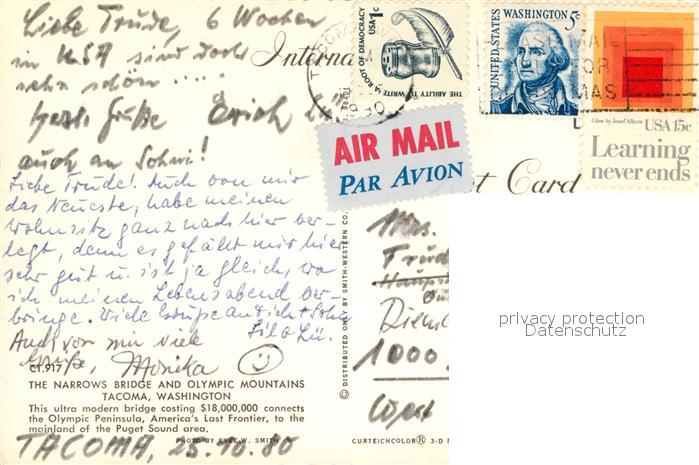 Liebe Trude, 6 Wochen
in USA sind doch
sehr schön ....
herzl. Grüße Erich
auch an Sohn!
Liebe Trude! Auch von mir
das Neueste, habe meinen
Wohnsitz ganz nach hier ver-
legt, denn es gefällt mir hier
sehr gut u. ist ja gleich, wo
ich meinen Lebensabend ver-
bringe. Viele Grüße an Dich + Sohn
Auch von mir viele
Grüße, Monika
CT.917
THE NARROWS BRIDGE AND OLYMPIC MOUNTAINS
TACOMA, WASHINGTON
This ultra modern bridge costing $18,000,000 connects
the Olympic Peninsula, America's Last Frontier, to the
mainland of the Puget Sound area.
PHOTO BY KYLE W. SMITH
TACOMA, 25.10.80
Interna
THE ABILITY TO WRITE A ROOT OF DEMOCRACY
USA 1c
UNITED STATES
WASHINGTON 5c
MAIL
FOR
MAS
Glow by Josef Albers
USA 15c
Learning
never ends
AIR MAIL
PAR AVION
st Card
© DISTRIBUTED ONLY BY SMITH-WESTERN CO.
Mrs.
Trud
Haupt
Dien
1000
West
CURTEICHCOLOR® 3-D
privacy protection
Datenschutz